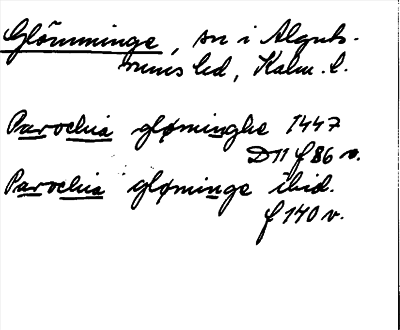 Glömminge, sn i Alguts-
rums hd, Kalm. l.
Parochia gløminghe 1447
D 11 f 86 v.
Parochia gløminge ibid.
f 140 v.